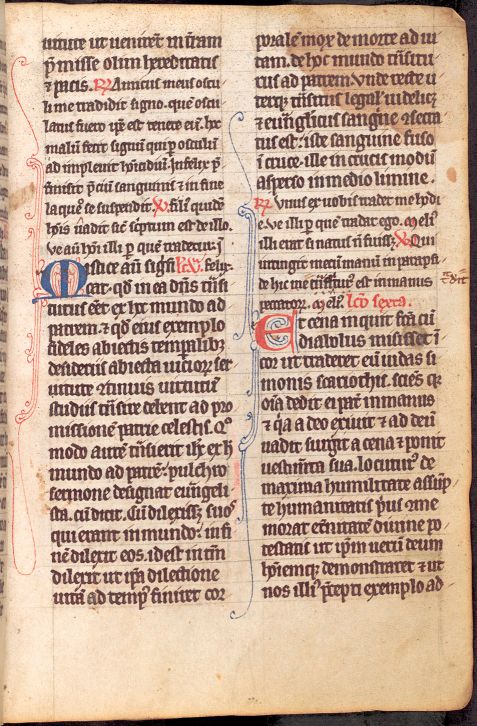 uitute ut ueniret in t̃ram
p̃misse olim hereditatis
⁊ pacis. R̷ Amicus meus oscu
li me tradidit signo. quẽ oscu
latus fuero ip̃e est tenete eũ. hoc
malũ fecit signũ qui ꝑ osculũ
ad impleuit homicidiũ. infelix p̃
misit p̃ciũ sanguinis ⁊ in fine
laqueo se suspendit. V̷ fili' quidẽ
hoĩs uadit sic̃ sc̃ptum est de illo.
ve aũ hoĩ illi ꝑ quẽ tradetur. j
Mistice aũ signi lc̃o. v. fi
cat. qd̃ in ea dñs tñsi
turus eẽt ex hoc mundo ad
patrem. ⁊ qd̃ eius exemplo
fideles abiectis tempalib;
desideriis abiecta uicioꝝ ser
uitute ⁊tinuis uirtutũ
studiis tñsire debent ad pro
missionẽ patrie celestis. Qͦ
modo autẽ tñsierit ih̃c ex hͨ
mundo ad patrẽ. pulchro
sermone designat euũgeli
sta. cũ dicit. Cũ dilexiss; suos
qui erant in mundo: in fi
nẽ dilexit eos. id est in tm̃
dilexit ut ip̃a dilectione
uitã ad temp' finiret cor
poralẽ mox de morte ad ui
tam. de hoc mundo tñsitu
rus ad patrem. Vnde reste u
terq; tñsitus legal' uidelic;
⁊ euũglicus sanguĩe ⁊secra
tus est. iste sanguine fuso
ĩ cruce. ille in crucis modũ
asperso in medio limine.
R̷ Vnus ex uobis tradet me hodi
e. ve illi ꝑ quẽ tradar ego. meli'
illi erat si natus ñ fuiss; V̷ Qui
intingit mecũ manũ in parapsi
de hic me tñditurus est in manus
peccatoꝝ. meli'. lc̃o sexta.
Et cena inquit fc̃a cũ
diabolus misisset ĩ
cor ut traderet eũ iudas si
monis scariothis. sciẽs qꝫ
oĩa dedit ei pat' in manus
⁊ qꝛ a deo exiuit ⁊ ad deũ
uadit surgit a cena ⁊ ponit
uestimẽta sua. locutur' de
maxima humilitate assũp
te humanitatis p̃us ⁊me
morat et̃nitatẽ diuine po
testatis ut ip̃m uerũ deum
hoĩemqꝫ demonstraret ⁊ ut
nos illi' p̃cepti exemplo ad